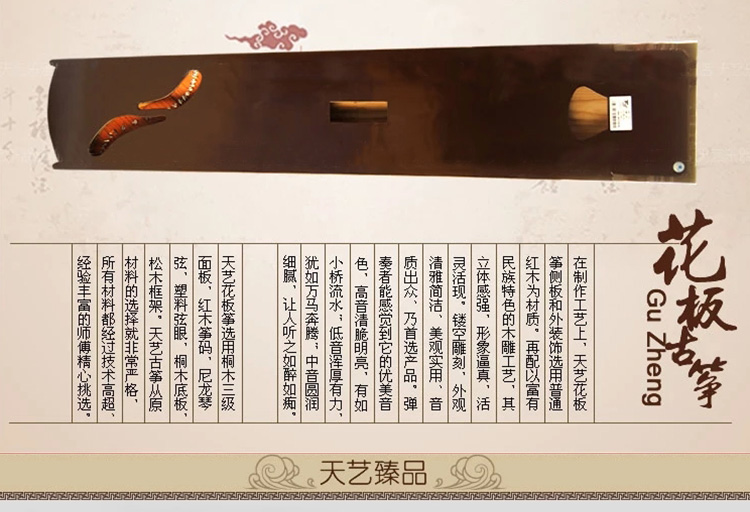 花板古筝
Gu Zheng
在制作工艺上、天艺花板
筝侧板和外装饰选用普通
红木为材质。再配以富有
民族特色的木雕工艺，其
立体感强、形象逼真、活
灵活现。镂空雕刻、外观
清雅简洁、美观实用、音
质出众，乃首选产品。弹
奏者能感觉到它的优美音
色，高音清脆明亮，有如
小桥流水；低音浑厚有力，
犹如万马奔腾；中音圆润
细腻，让人听之如醉如痴。
天艺花板筝选用桐木三级
面板、红木筝码、尼龙琴
弦、塑料弦眼，桐木底板，
松木框架。天艺古筝从原
材料的选择就非常严格，
所有材料都经过技术高超、
经验丰富的师傅精心挑选。
天艺臻品